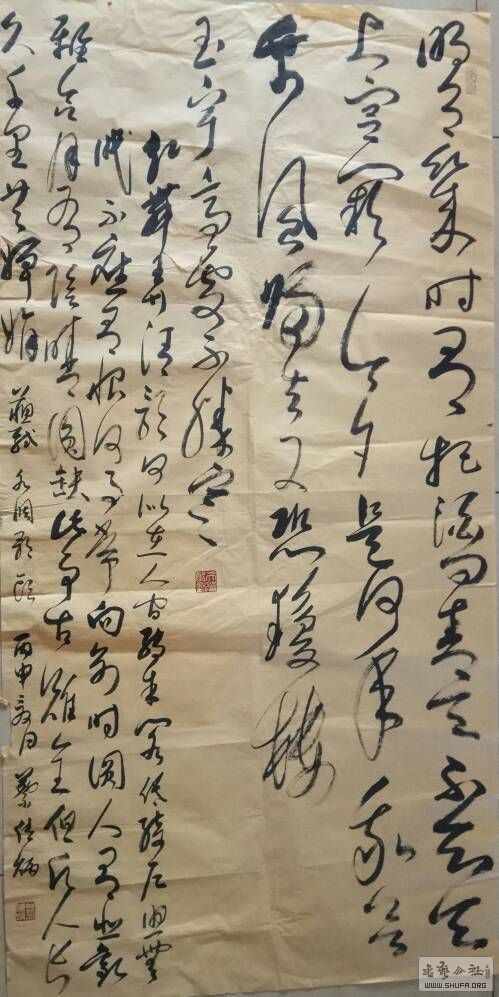 明月幾时有把酒问青天不知天
上宫阙今夕是何年我欲
乘風归去又恐瓊樓
玉宇高处不勝寒
起舞弄清影何似在人间转朱阁低绮户照無
眠不應有恨何事长向别时圆人有悲歡
離合月有阴晴圆缺此事古难全但願人长
久千里共嬋娟 蘇軾 水调歌头 丙申 月 蔡
书艺公社
WWW.SHUFA.ORG